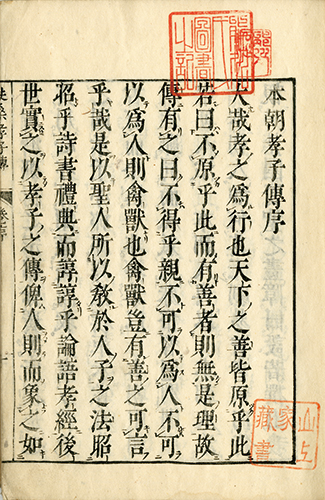 本朝孝子傳序
大哉孝之為行也天下之善皆原乎此
若曰不原乎此而有善者則無是理故
傳有之曰不得乎親不可以為人不可
以為人則禽獸也禽獸豈有善之可言
乎哉是以聖人所以敎於人子之法昭
昭乎詩書禮典而諄諄乎論語孝經後
世實之以孝子之傳俾人則而象之如
山上
家
藏書